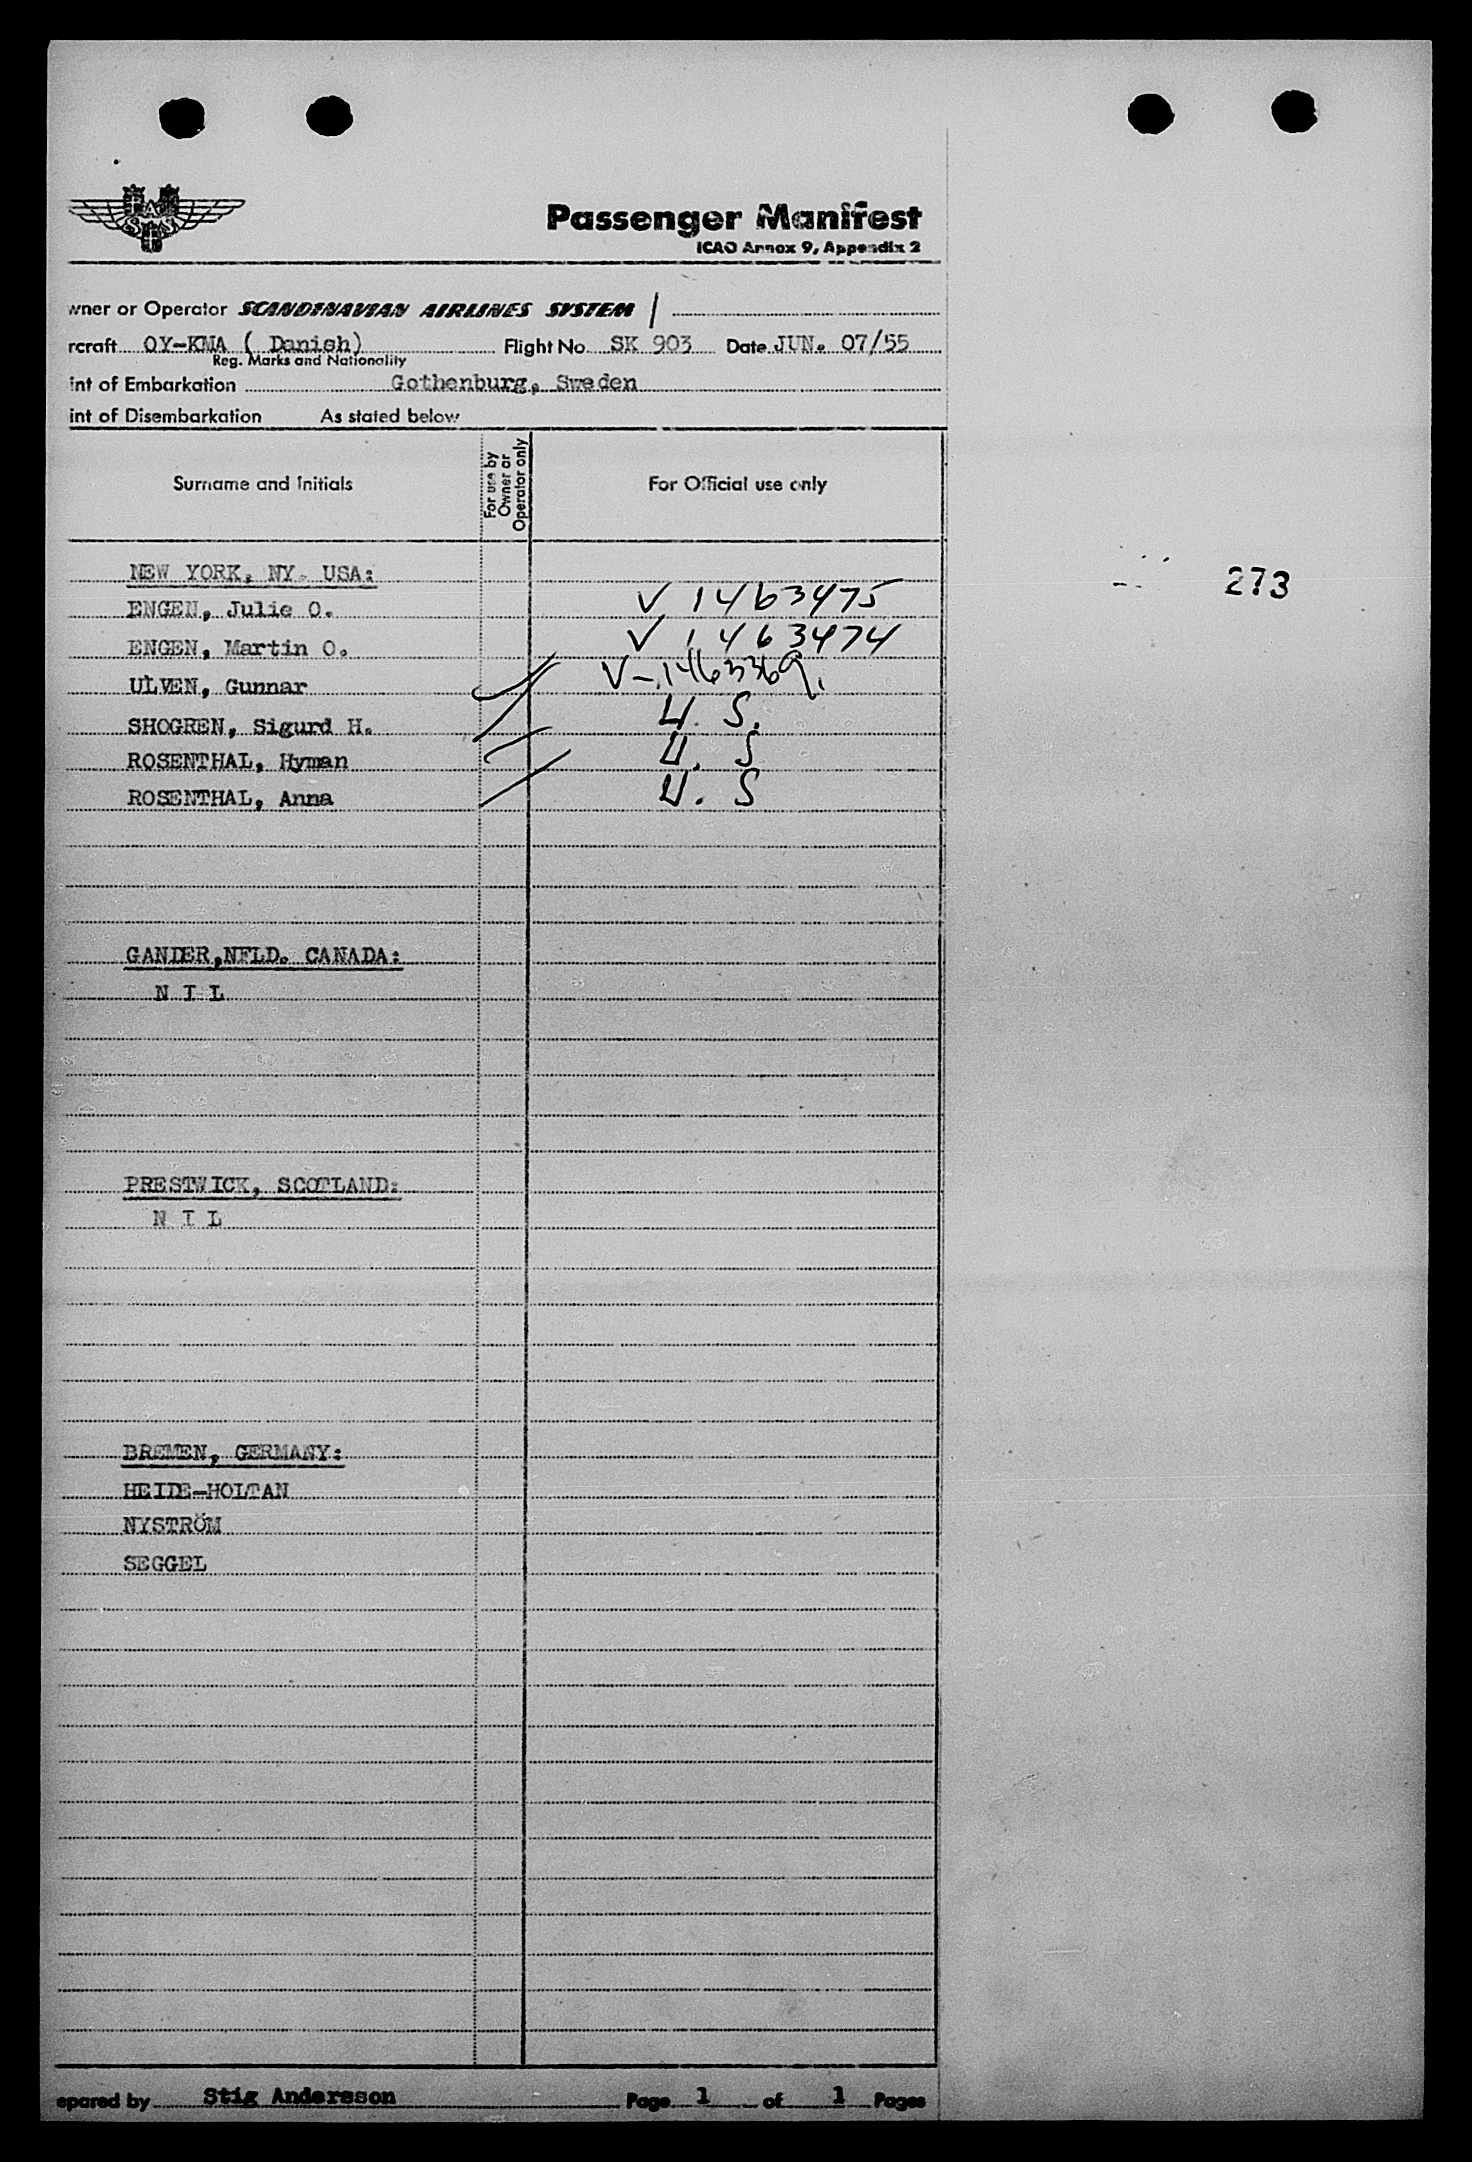 SAS
Passenger Manifest
ICAO Annex 9, Appendix 2
wner or Operator SCANDINAVIAN AIRLINES SYSTEM
rcraft OY-KMA ( Danish) Flight No SK 903 Date JUN. 07/55
Reg. Marks and Nationality
int of Embarkation Gothenburg, Sweden
int of Disembarkation As stated below
Surname and Initials For use by Owner or Operator only For Official use only
NEW YORK, NY. USA: 273
ENGEN, Julie O. V 1463475
ENGEN, Martin O. V 1463474
ULVEN, Gunnar V-1463369
SHOGREN, Sigurd H. U. S.
ROSENTHAL, Hyman U. S
ROSENTHAL, Anna U. S
GANDER,NFLD. CANADA:
N I L
PRESTWICK, SCOTLAND:
N I L
BREMEN, GERMANY:
HEIDE-HOLTAN
NYSTRÖM
SEGGEL
epared by Stig Andersson Page 1 of 1 Pages